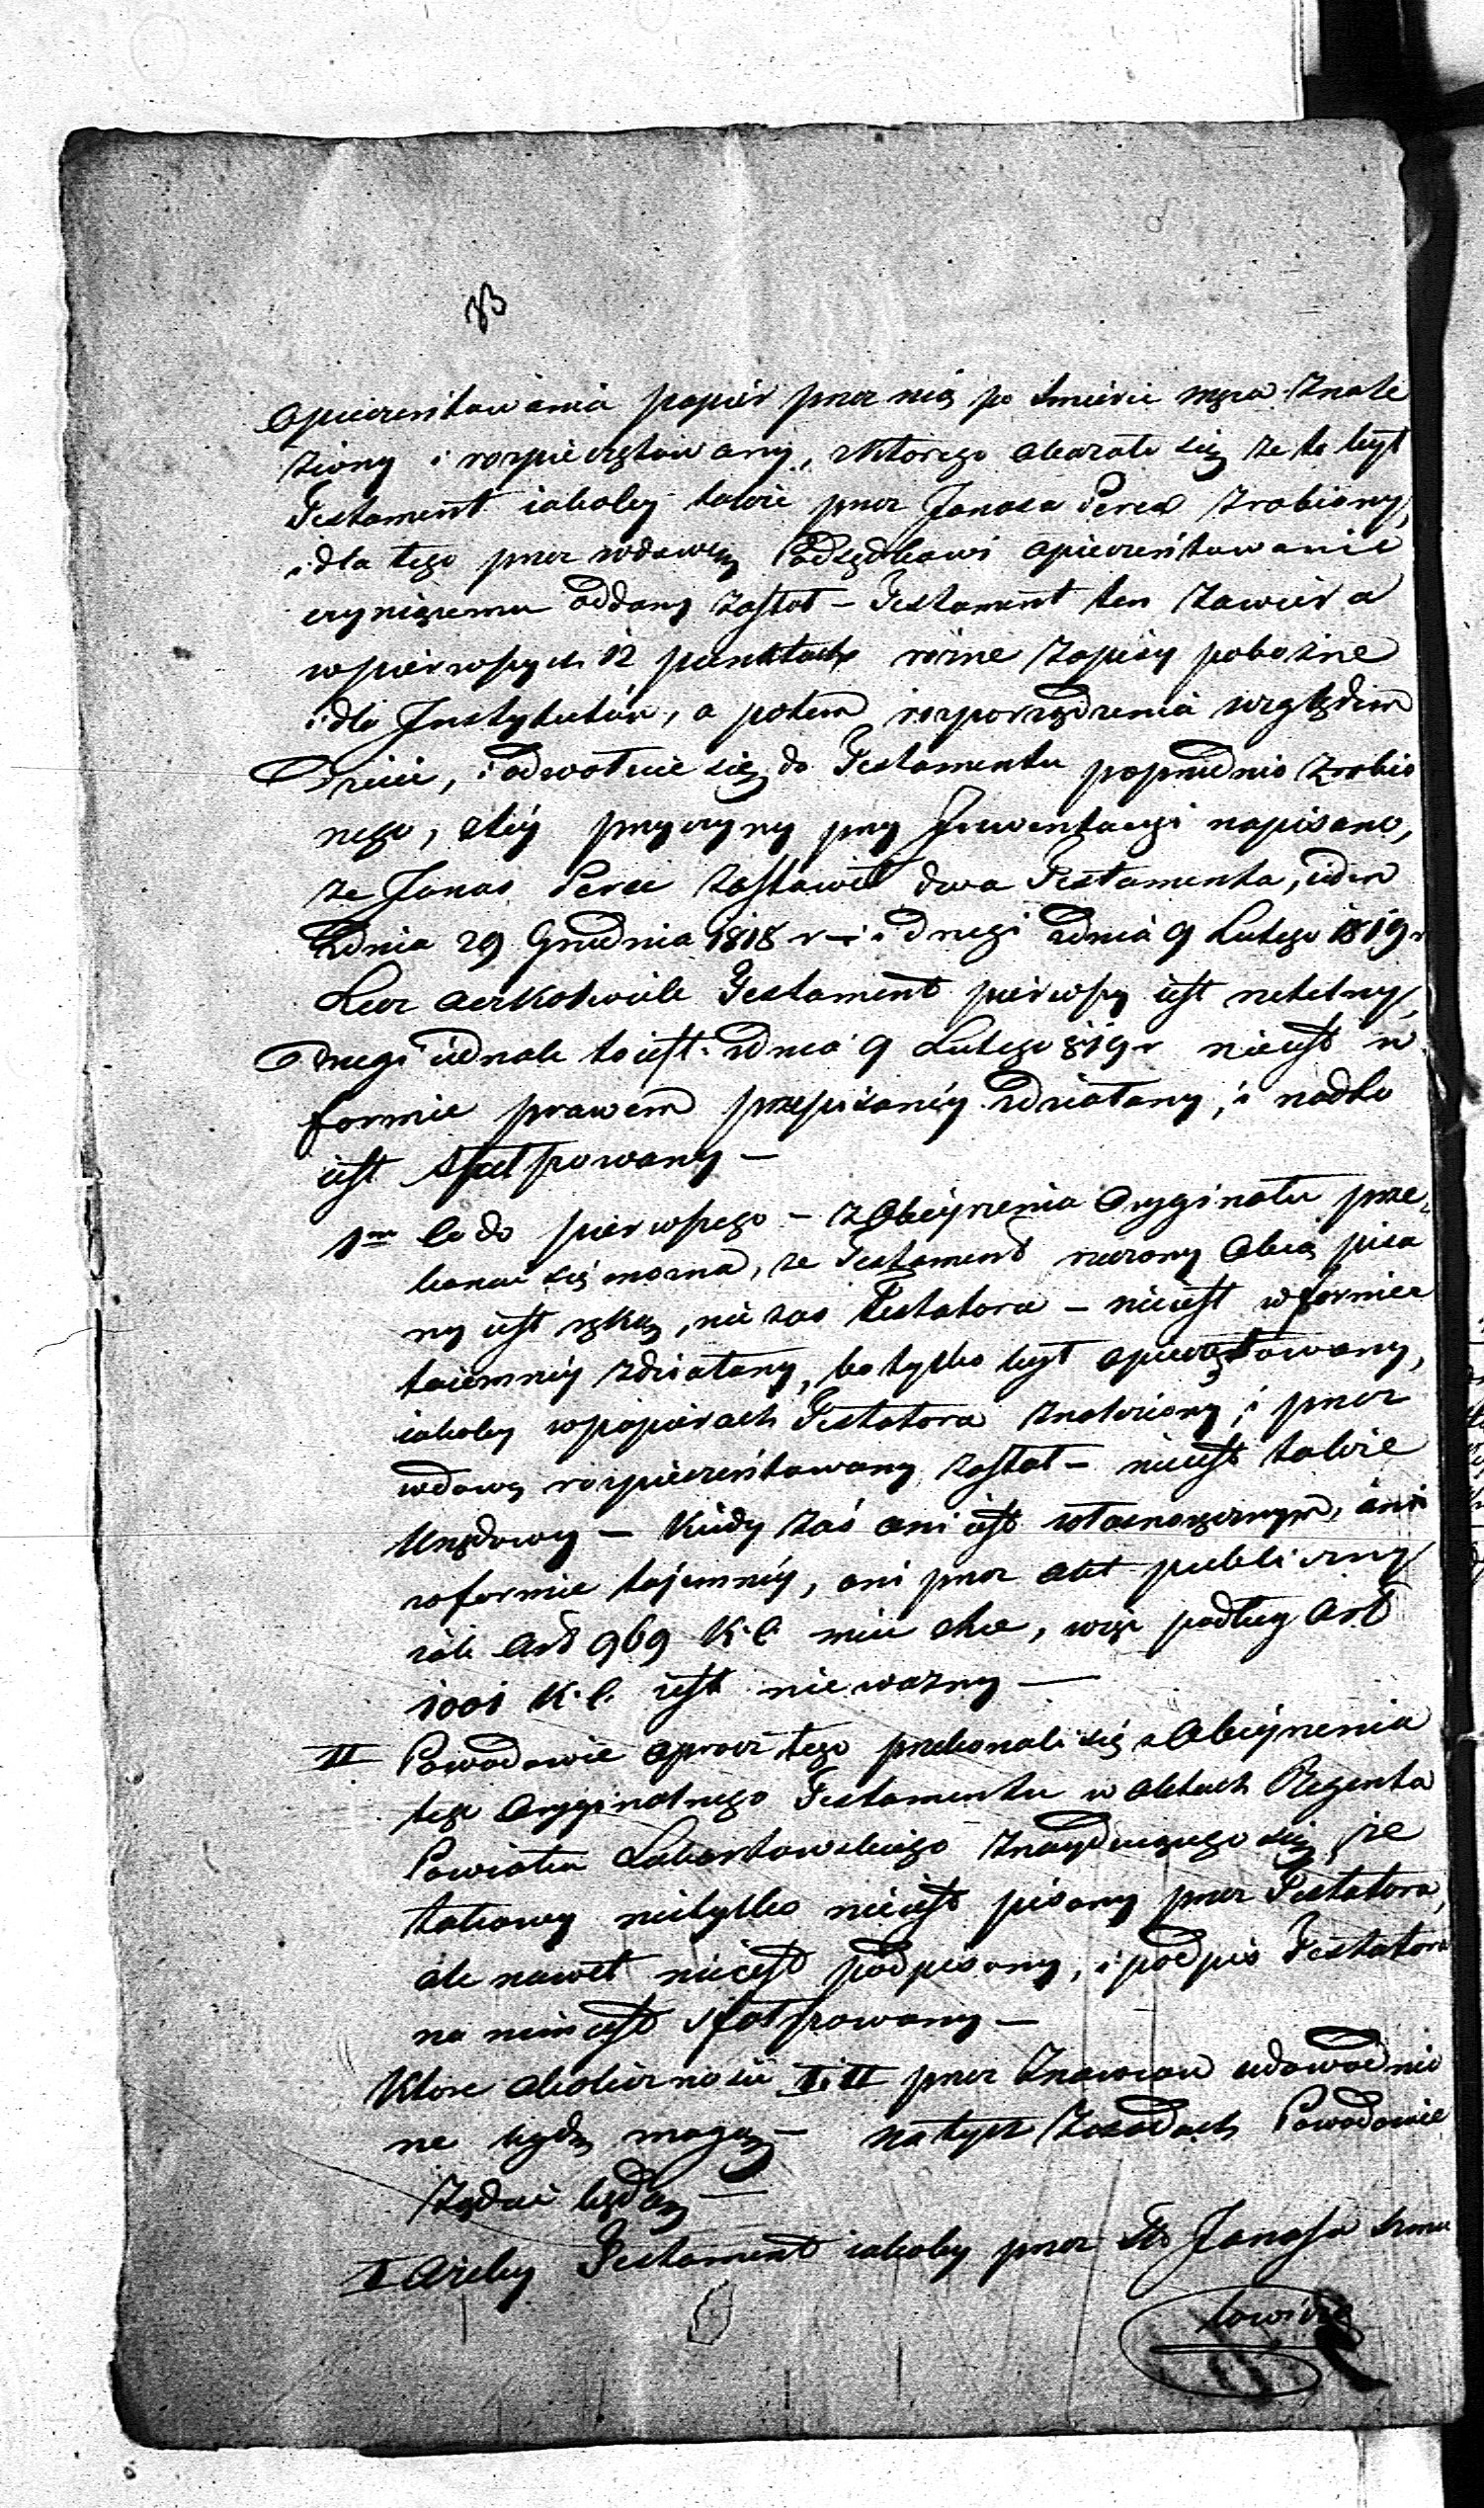 opieczentowania papier przez nią po śmierci męża znale
ziony i rozpieczętowany, z ktorego okazało się że to był
Testament iakoby także przez Jonasa Perec zrobiony,
i dla tego przez wdowę Podsędkowi opieczentowanie
czyniącemu oddany został – Testament ten zawiera
w pierwszych 12 punktach rożne zapisy pobożne
i dla Instytutów, a potem rozporządzenia względem
Dzieci, i odwołuie się do Testamentu poprzednio zrobio
nego, z téy przyczyny przy Inwentacyi napisano,
że Jonas Perec zostawił dwa Testamenta, ieden
z dnia 29 Grudnia 1818 r – i drugi z dnia 9 Lutego 1819 r
Lecz aczkolwiek Testament pierwszy iest rzetelny,
Drugi iednak to iest z dnia 9 Lutego 819 r nieiest w
formie prawem przepisanéy zdziałany, i nadto
iest sfałszowany –
1mo Co do pierwszego – z obeyrzenia oryginału prze
konać się można, że Testament rzeczony obcą pisa
ny iest ręką, nie zaś Testatora – nieiest w formie
taiemnéy zdziałany, bo tylko był opieczętowany,
iakoby w papierach Testatora znaleziony, i przez
wdowę rozpieczentowany został – nieiest także
Urzędowy – Kiedy zaś ani iest własnoręcznym, ani
w formie tajemnéy, ani przez akt publiczny
iak Art 969 K. C. mieć chce, więc podług Art
1001 K. C. iest nieważny —
II Powodowie oprócz tego przekonali się z obeyrzenia
tego oryginalnego Testamentu w aktach Regenta
Powiatu Lubartowskiego znayduiącego się, że
takowy nietylko nieiest pisany przez Testatora,
ale nawet nieiest podpisany, i podpis Testatora
na nim iest sfałszowany –
Ktore okoliczności I. i II przez znawców udowodnio
ne bydź mogą – na tych zasadach Powodowie
żądać będą —
I Ażeby Testament iakoby przez Jonasa Szmu
lowicza